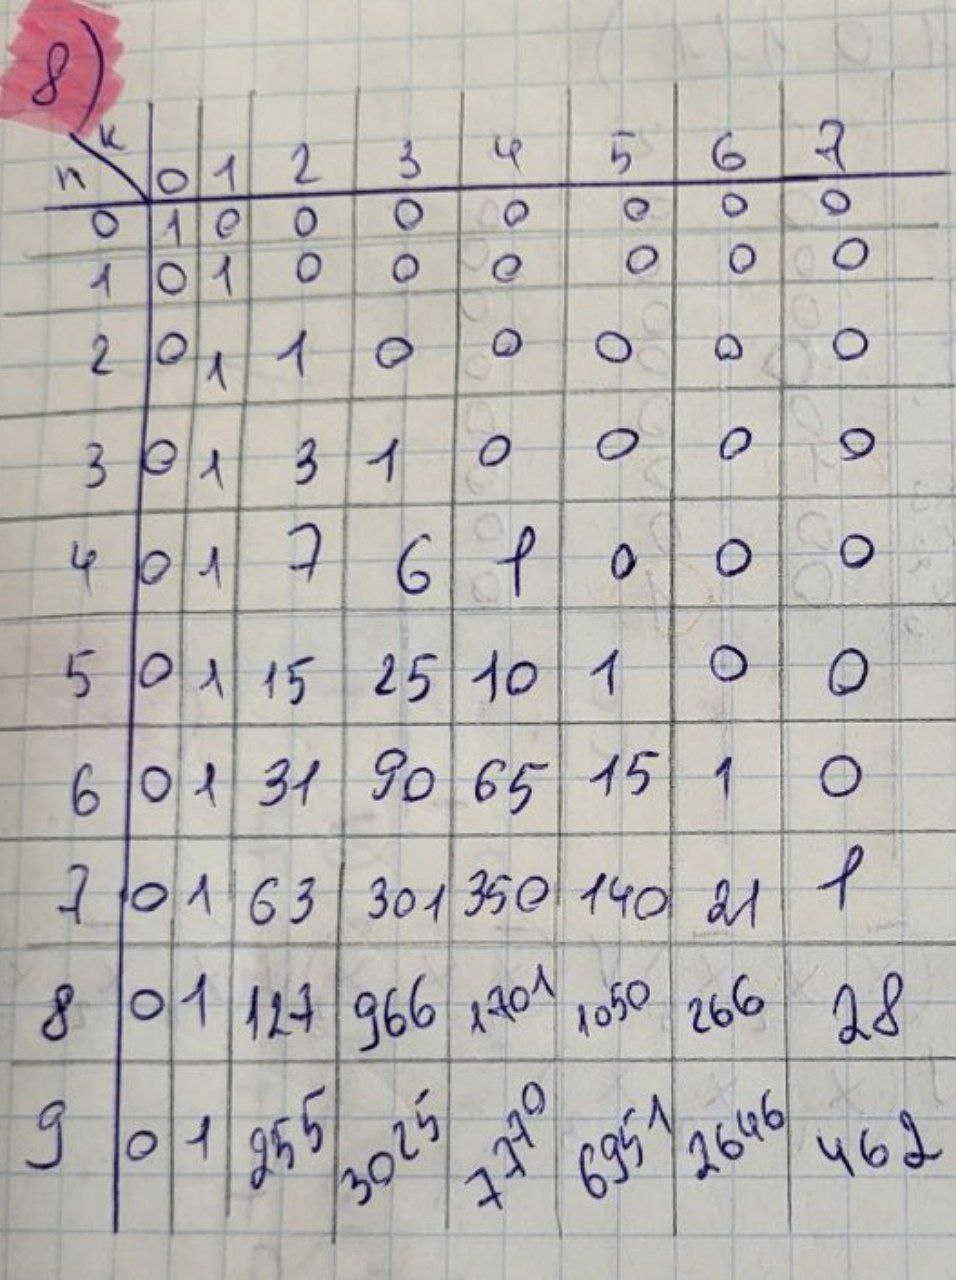 8)
n k 0 1 2 3 4 5 6 7
0 1 0 0 0 0 0 0 0
1 0 1 0 0 0 0 0 0
2 0 1 1 0 0 0 0 0
3 0 1 3 1 0 0 0 0
4 0 1 7 6 1 0 0 0
5 0 1 15 25 10 1 0 0
6 0 1 31 90 65 15 1 0
7 0 1 63 301 350 140 21 1
8 0 1 127 966 1701 1050 266 28
9 0 1 255 3025 7770 6951 2646 462